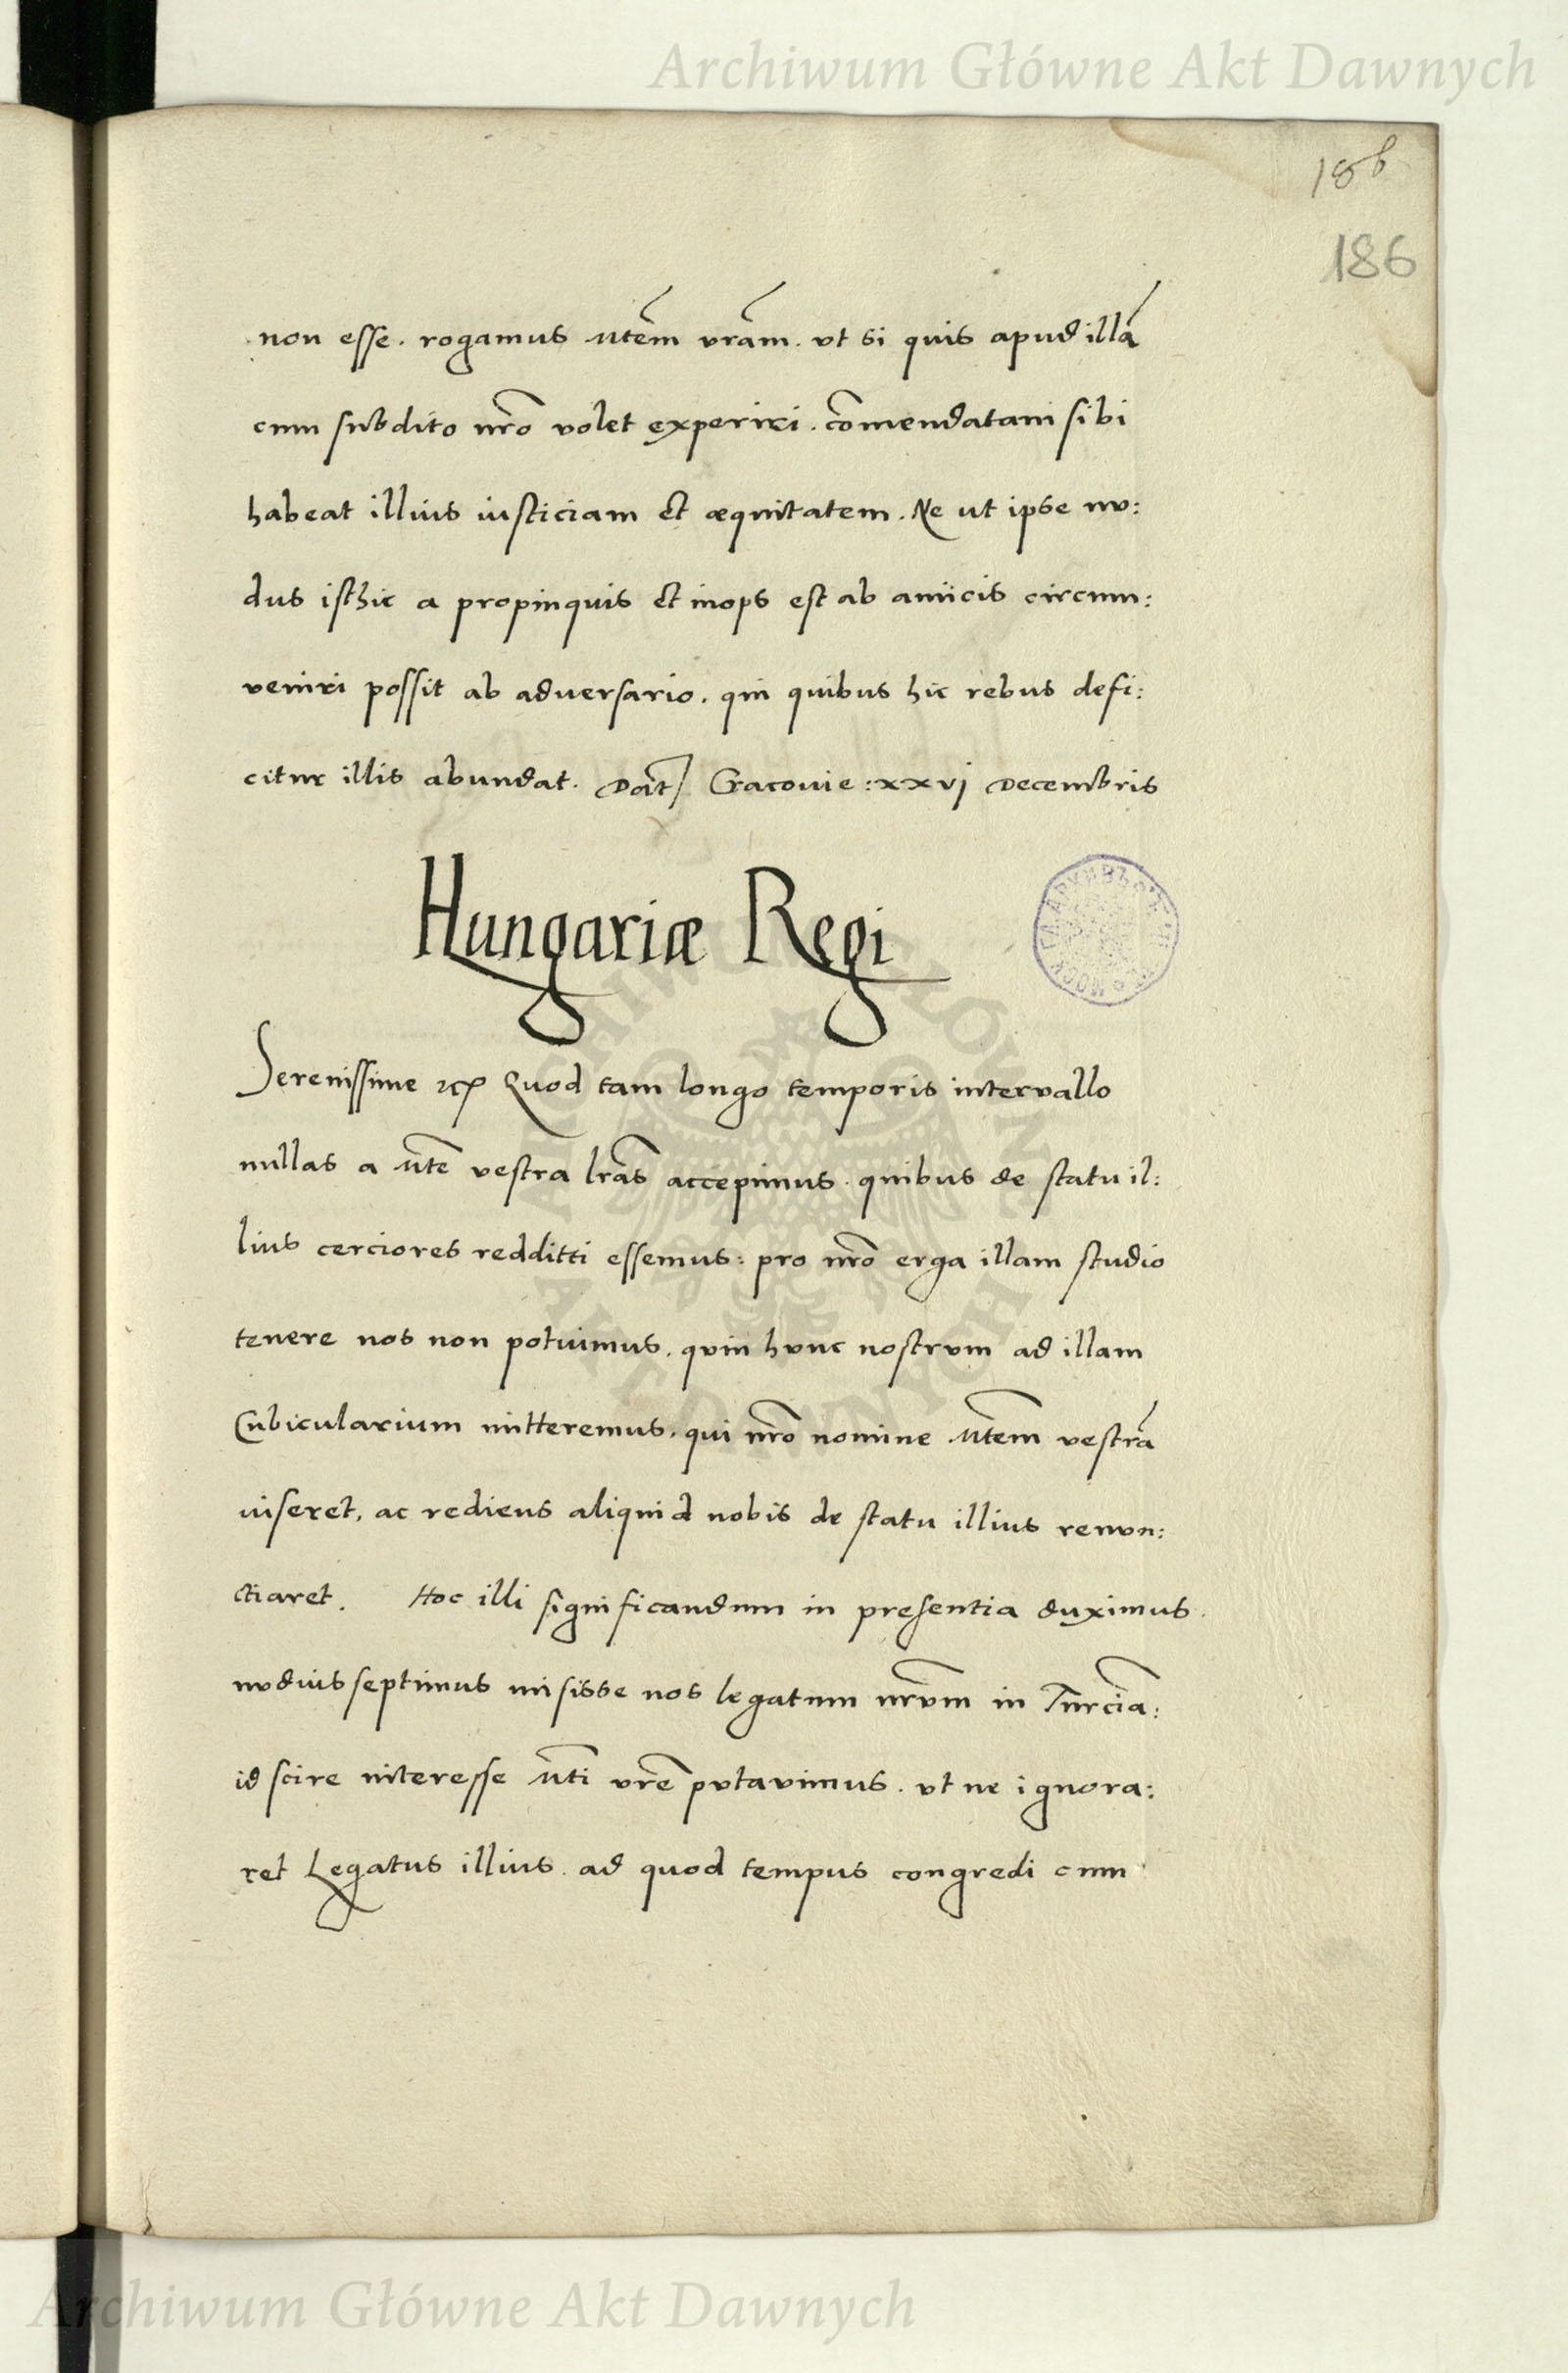 Archiwum Główne Akt Dawnych
186
186
non esse. rogamus Mtem vram. vt si quis apud illā
cum subdito nro volet experiri. cōmendatam sibi
habeat illius iusticiam et æquitatem. Ne ut ipse nu:
dus isthic a propinquis et inops est ab amicis circum:
veniri possit ab adversario. qui quibus hic rebus defi:
citur illis abundat. Dat Cracovie : xxvj Decembris
Hungariæ Regi
Serenissime Quod tam longo temporis intervallo
nullas a Mte vestra lras accepimus. quibus de statu il:
lius cerciores redditi essemus: pro nro erga illam studio
tenere nos non potuimus. quin hunc nostrum ad illam
Cubicularium mitteremus. qui nro nomine Mtem vestrā
viseret. ac rediens aliquid nobis de statu illius renun:
ctiaret. Hoc illi significandum in presentia duximus.
nudius septimus misisse nos legatum nrum in Turciā:
id scire interesse Mti vre putavimus. vt ne ignora:
ret Legatus illius. ad quod tempus congredi cum
ARCHIWUM GŁÓWNE AKT DAWNYCH
Archiwum Główne Akt Dawnych